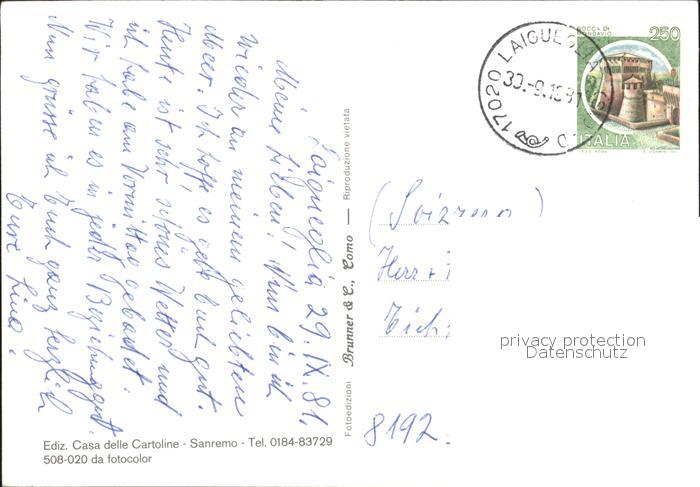 Laigueglia 29.IX.81.
Meine Lieben! Nun bin ich
wieder an meinem geliebten
Meer. Ich hoffe es geht Euch gut.
Heute ist sehr schönes Wetter und
ich habe am Vormittag gebadet.
Wir haben es in jeder Beziehung gut.
Nun grüsse ich Euch ganz herzlich
Eure Lina.
Ediz. Casa delle Cartoline - Sanremo - Tel. 0184-83729
508-020 da fotocolor
Fotoedizioni Brunner & C., Como — Riproduzione vietata
17020 LAIGUEGLIA
30.-9.1981
ROCCA DI
MONDAVIO
250
ITALIA
(Svizzera)
Herr +
8192
privacy protection
Datenschutz